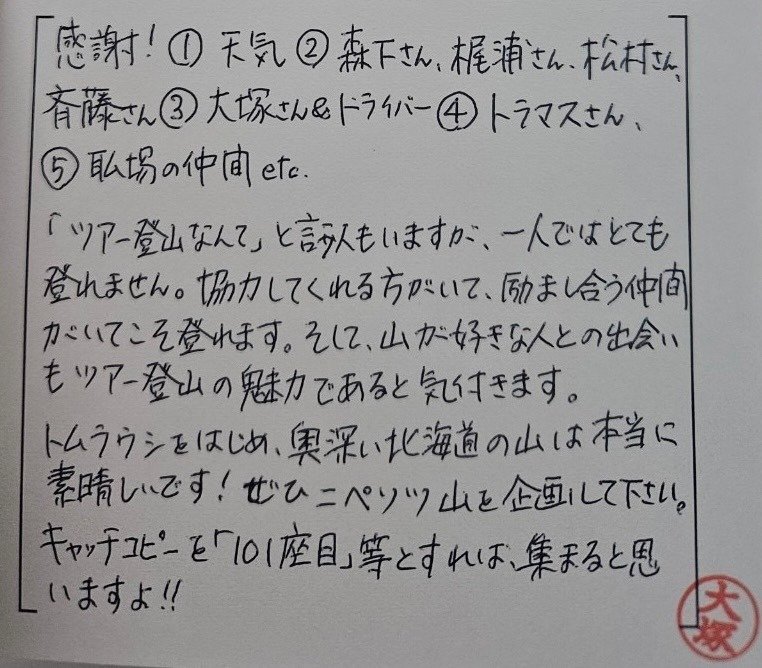 感謝! ① 天気 ② 森下さん、梶浦さん、松村さん、
斉藤さん ③ 大塚さん&ドライバー ④ トラマスさん、
⑤ 職場の仲間 etc.
「ツアー登山なんて」と言う人もいますが、一人ではとても
登れません。協力してくれる方がいて、励まし合う仲間
がいてこそ登れます。そして、山が好きな人との出会い
もツアー登山の魅力であると気付きます。
トムラウシをはじめ、奥深い北海道の山は本当に
素晴しいです! ぜひニペソツ山を企画して下さい。
キャッチコピーを「101座目」等とすれば、集まると思
いますよ!!
大塚